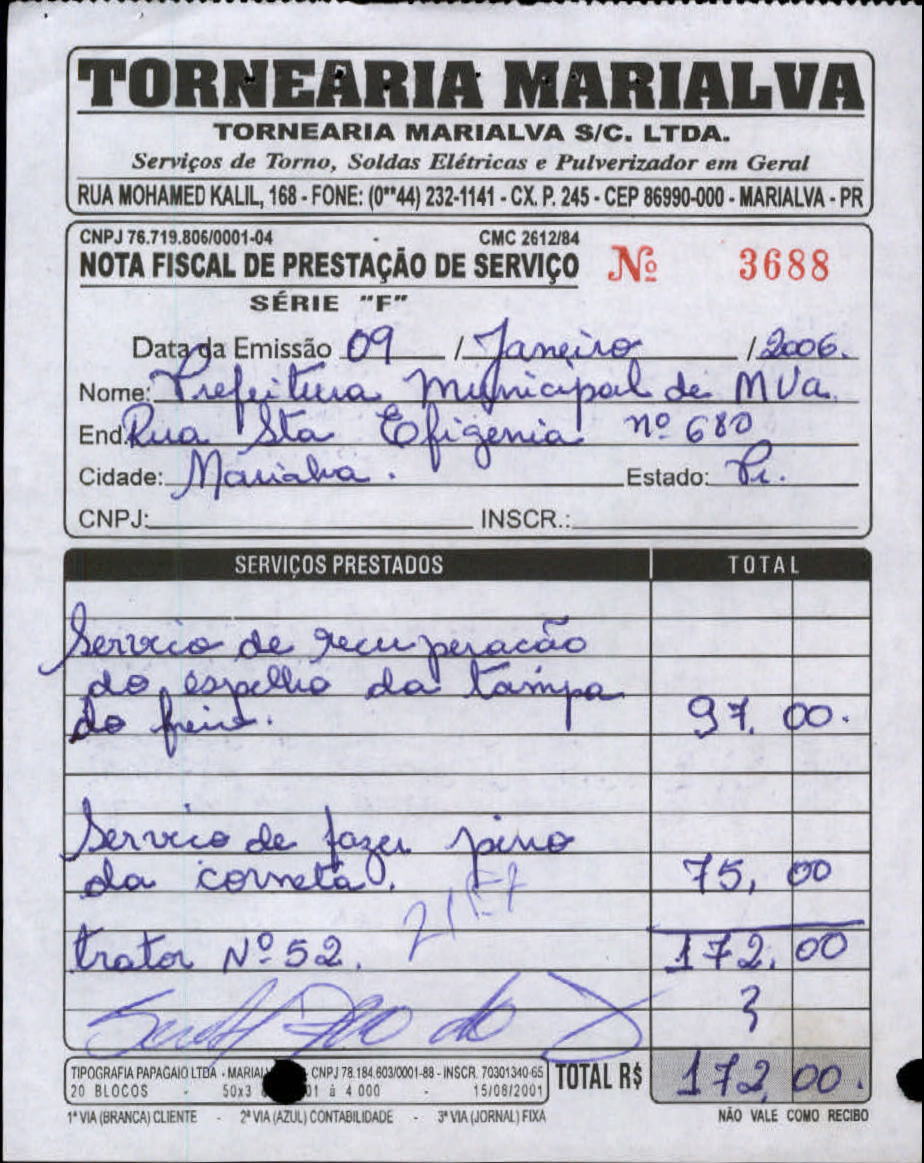 TORNEARIA MARIALVA
TORNEARIA MARIALVA S/C. LTDA.
Serviços de Torno, Soldas Elétricas e Pulverizador em Geral
RUA MOHAMED KALIL, 168 - FONE: (0**44) 232-1141 - CX. P. 245 - CEP 86990-000 - MARIALVA - PR
CNPJ 76.719.806/0001-04 CMC 2612/84
NOTA FISCAL DE PRESTAÇÃO DE SERVIÇO Nº 3688
SÉRIE "F"
Data da Emissão 09 / Janeiro / 2006.
Nome: Prefeitura Municipal de MVa
End. Rua Sta Efigenia nº 680
Cidade: Marialva. Estado: Pr.
CNPJ: INSCR.:
SERVIÇOS PRESTADOS TOTAL
Servico de recuperacão
do espelho da tampa
do freio. 97,00.
Servico de fazer pino
da corneta. 75,00
trator Nº 52. 172,00
TIPOGRAFIA PAPAGAIO LTDA - CNPJ 78.184.603/0001-88 - INSCR. 70301340-65
20 BLOCOS - 50x3 á 4.000 - 15/08/2001
TOTAL R$ 172,00.
1ª VIA (BRANCA) CLIENTE - 2ª VIA (AZUL) CONTABILIDADE - 3ª VIA (JORNAL) FIXA NÃO VALE COMO RECIBO